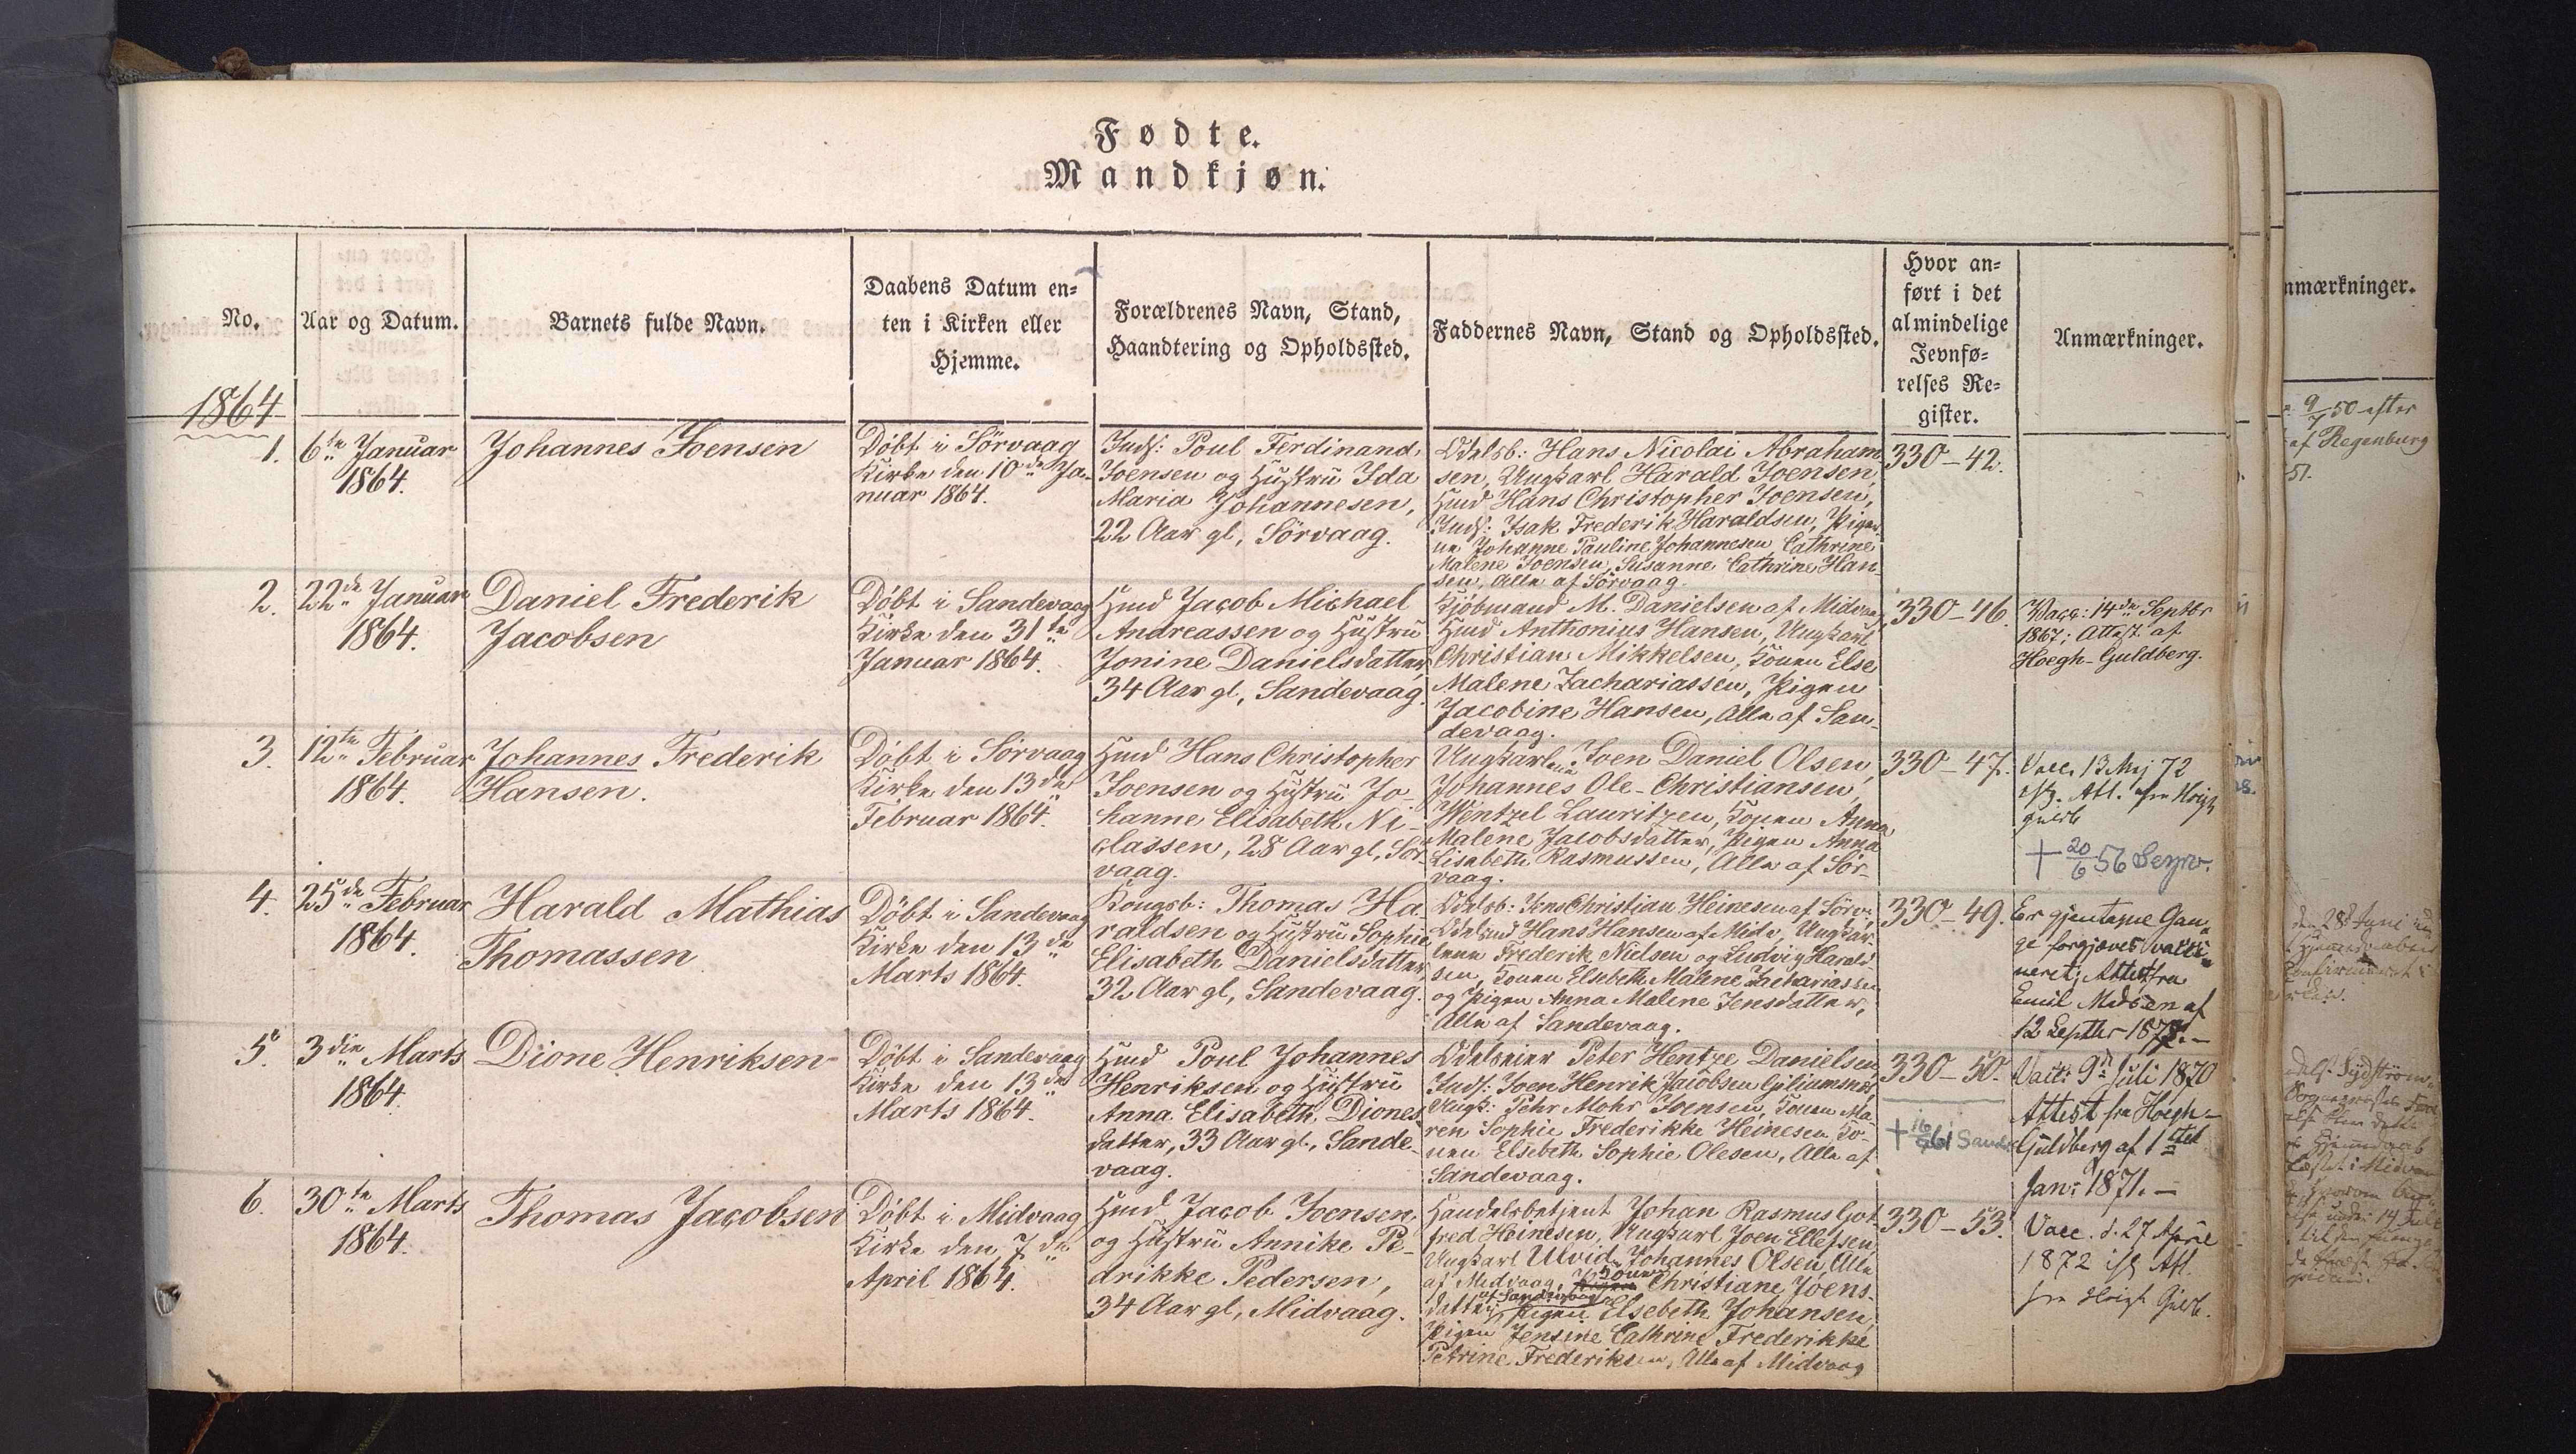 Fødte.
Mandkjøn.
No.
Aar og Datum.
Barnets fulde Navn.
Daabens Datum en-
ten i Kirken eller
Hjemme.
Forældrenes Navn, Stand,
Haandtering og Opholdssted.
Faddernes Navn, Stand og Opholdssted.
Hvor an-
ført i det
almindelige
Jevnfø-
relses Re-
gister.
Anmærkninger.
1864
1.
6te Januar
1864.
Johannes Joensen
Döbt i Sörvaag
Kirke den 10de Ja-
nuar 1864.
Inds: Poul Ferdinand
Joensen og Hustru Ida
Maria Johannesen,
22 Aar gl, Sörvaag.
Odelsb: Hans Nicolai Abraham-
sen, Ungkarl Harald Joensen,
Hmd Hans Christopher Joensen,
Inds: Isak Frederik Haraldsen, Piger-
ne Johanne Pauline Johannesen, Cathrine
Malene Joensen, Susanne Cathrine Han-
sen, Alle af Sörvaag.
330-42.
2.
22de Januar
1864.
Daniel Frederik
Jacobsen
Döbt i Sandevaag
Kirke den 31te
Januar 1864.
Hmd Jacob Michael
Andreassen og Hustru
Jonine Danielsdatter,
34 Aar gl, Sandevaag.
Kjöbmand M. Danielsen af Midvaag,
Hmd Anthonius Hansen, Ungkarl
Christian Mikkelsen, Konen Else
Malene Zachariassen, Pigen
Jacobine Hansen, Alle af San-
devaag.
330-46.
Vacc: 14de Septbr
1867; Attest af
Hoegh-Guldberg.
3.
12te Februar
1864.
Johannes Frederik
Hansen.
Döbt i Sörvaag
Kirke den 13de
Februar 1864.
Hmd Hans Christopher
Joensen og Hustru Jo-
hanne Elisabeth Ni-
classen, 28 Aar gl, Sör-
vaag.
Ungkarlene Joen Daniel Olsen,
Johannes Ole-Christiansen,
Wentzel Lauritzen, Konen Anna
Malene Jacobsdatter, Pigen Anna
Lisabeth Rasmussen, Alle af Sör-
vaag.
330-47.
Vacc. 13 Mj 72
Att. fra Høigh
Guldb
+ 20/6 56
4.
25de Februar
1864.
Harald Mathias
Thomassen
Döbt i Sandevaag
Kirke den 13de
Marts 1864.
Kongsb: Thomas Ha-
raldsen og Hustru Sophie
Elisabeth Danielsdatter,
32 Aar gl, Sandevaag.
Odelsb: Jens Christian Heinesen af Sörv:
Hans Hansen af Midv, Ungkar-
lene Frederik Nielsen og Ludvig Harald-
sen, Konen Elsebeth Malene Zachariassen
og Pigen Anna Malene Jensdatter,
Alle af Sandevaag.
330-49.
Er gjentagne Gan-
ge forgjæves vacci-
neret; Attest fra
Emil Madsen af
12 Septbr
5.
3die Marts
1864.
Dione Henriksen
Döbt i Sandevaag
Kirke den 13de
Marts 1864.
Hmd Poul Johannes
Henriksen og Hustru
Anna Elisabeth Diones-
datter, 33 Aar gl, Sande-
vaag.
Peter Hentze Danielsen,
Inds: Joen Henrik Jacobsen
Ungk: Pehr Mohr Joensen, Konen Ma-
ren Sophie Frederikke Heinesen, Ko-
nen Elsebeth Sophie Olesen, Alle af
Sandevaag.
330-50.
Vacc: 9de Juli 1870
Attest fra Höegh-
Guldberg af 1ste
Jan: 1871.-
6.
30te Marts
1864.
Thomas Jacobsen
Döbt i Midvaag
Kirke den 7de
April 1864.
Hmd Jacob Joensen
og Hustru Annike Pe-
drikke Pedersen,
34 Aar gl, Midvaag.
Handelsbetjent Johan Rasmus Got-
fred Heinesen, Ungkarl Joen Ellefsen,
Ungkarl Ulvid Johannes Olsen, Alle
af Midvaag, Konen Christiane Joens-
datter af Sandevaag, Pigen Elsebeth Johansen,
Pigen Jensine Cathrine Frederikke
Petrine Frederiksen, Alle af Midvaag
330-53.
Vacc. d. 27 April
1872 Att.
fra Høigh Guldb.
nmærkninger.
9/7 50 efter
af Regenburg
51.